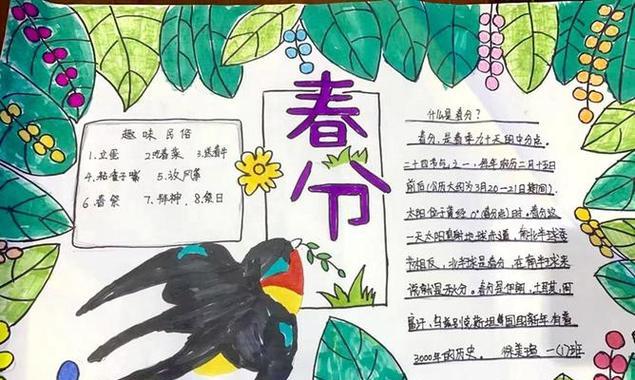 春分
趣味民俗
1.立蛋 2.吃春菜 3.送春牛
4.粘雀子嘴 5.放风筝
6.春祭 7.拜神 8.祭日
什么是春分?
春分,是春季九十天的中分点。
二十四节气之一,每年农历二月十五日
前后(公历大约为3月20—21日期间),
太阳位于黄经0°(春分点)时。春分这
一天太阳直射地球赤道,南北半球季
节相反,北半球是春分,在南半球来
说就是秋分。春分是伊朗、土耳其、阿
富汗、乌兹别克斯坦等国的新年,有着
3000年的历史。 一(1)班